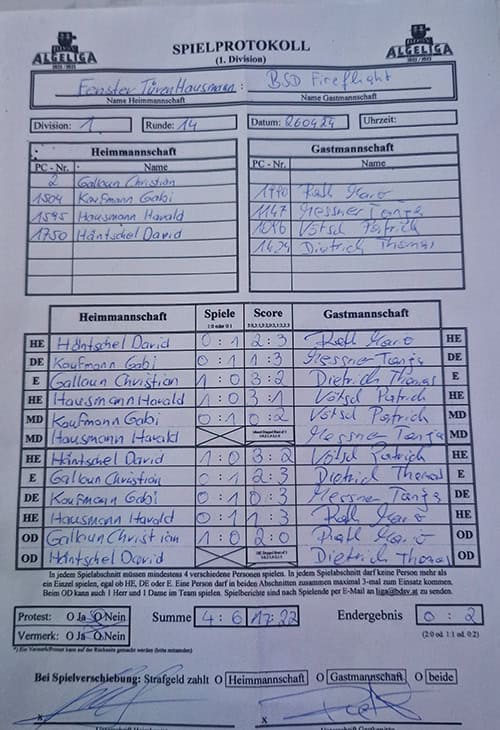 ALGELIGA
SPIELPROTOKOLL
ALGELIGA
(1. Division)
Fenster Türen Hausmann : BSD Fireflight
Name Heimmannschaft Name Gastmannschaft
Division: 1 Runde: 14 Datum: 260424 Uhrzeit:
Heimmannschaft Gastmannschaft
PC - Nr. Name PC - Nr. Name
2 Galloun Christian
1504 Kaufmann Gabi 1990 Roth Mario
1595 Hausmann Harald 1147 Messner Tanja
1750 Häntschel David 1096 Vötsl Patrich
1424 Dietrich Thomas
Heimmannschaft Spiele Score Gastmannschaft
1:0 oder 0:1
HE Häntschel David 0 : 1 2 : 3 Roth Mario HE
DE Kaufmann Gabi 0 : 1 1 : 3 Messner Tanja DE
E Galloun Christian 1 : 0 3 : 2 Dietrich Thomas E
HE Hausmann Harald 1 : 0 3 : 1 Vötsl Patrich HE
MD Kaufmann Gabi 0 : 1 0 : 2 Vötsl Patrich MD
MD Hausmann Harald Messner Tanja MD
HE Häntschel David 1 : 0 3 : 2 Vötsl Patrich HE
E Galloun Christian 0 : 1 2 : 3 Dietrich Thomas E
DE Kaufmann Gabi 0 : 1 0 : 3 Messner Tanja DE
HE Hausmann Harald 0 : 1 1 : 3 Roth Mario HE
OD Galloun Christian 1 : 0 2 : 0 Roth Mario OD
OD Häntschel David Dietrich Thomas OD
In jedem Spielabschnitt müssen mindestens 4 verschiedene Personen spielen. In jedem Spielabschnitt darf keine Person mehr als
ein Einzel spielen, egal ob HE, DE oder E. Eine Person darf in beiden Abschnitten zusammen maximal 3-mal zum Einsatz kommen.
Beim OD kann auch 1 Herr und 1 Dame im Team spielen. Spielberichte sind nach Spielende per E-Mail an liga@bdsv.at zu senden.
Protest: O Ja O Nein Summe 4 : 6 17 : 22 Endergebnis 0 : 2
Vermerk: O Ja O Nein (2:0 od. 1:1 od. 0:2)
*) Ein Vermerk/Protest kann auf der Rückseite gemacht werden (bitte ankreuzen)
Bei Spielverschiebung: Strafgeld zahlt O Heimmannschaft O Gastmannschaft O beide
x x